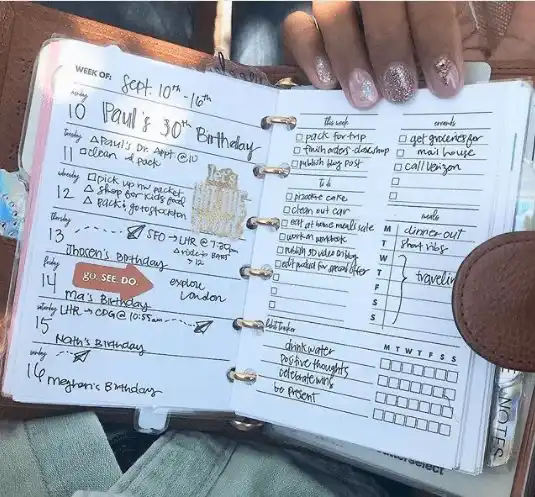 WEEK OF: Sept. 10th - 16th
monday
10 Paul's 30th Birthday
tuesday
△ Paul's Dr. Appt @ 10
11 □ clean & pack
wednesday
□ pick up nw packet
12 △ shop for kids food
△ pack; go to stockton
thursday
13 SFO → LHR @ 7:30
Thosen's Birthday
friday
14 GO. SEE. DO. explore
London
Ma's Birthday
saturday
LHR → CDG @ 10:55am
15
Nath's Birthday
sunday
16 Meghan's Birthday
this week
□ pack for trip
□ finish orders - close shop
□ publish blog post
to do
□ practice cake
□ clean out car
□ eat at home meals sale
□ work on workbook
□ publish SD video on blog
□ edit packed for special offer
□
□
□
habit tracker
M T W T F S S
drink water
positive thoughts
celebrate wins
be present
errands
□ get groceries for
□ mail house
□ call Verizon
□
□
meals
M dinner out
T short ribs
W
T travelin
F
S
S
NOTES